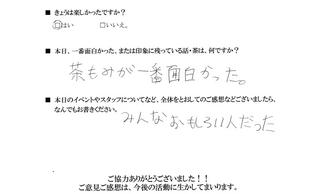 ■ きょうは楽しかったですか？
□はい □いいえ。
■ 本日、一番面白かった、または印象に残っている話・茶は、何ですか？
茶もみが一番面白かった。
■ 本日のイベントやスタッフについてなど、全体をとおしてのご感想などございましたら、
なんでもお書きください。
みんなおもしろい人だった
ご協力ありがとうございました！！
ご意見ご感想は、今後の活動に生かしてまいります。